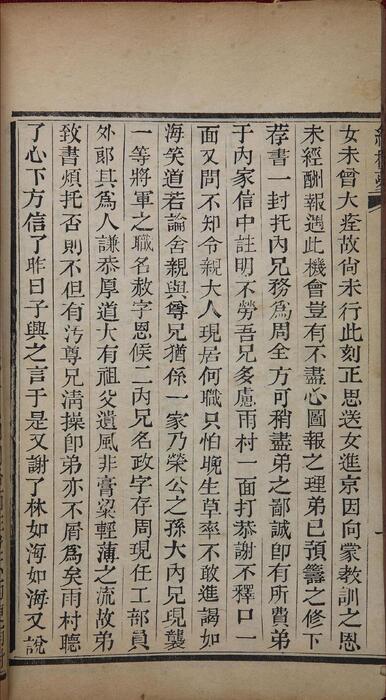 女未曾大痊故尚未行此刻正思送女進京因向蒙教訓之恩
未經酬報遇此機會豈有不盡心圖報之理弟已預籌之修下
荐書一封托內兄務爲周全方可稍盡弟之鄙誠卽有所費弟
于內家信中註明不勞吾兄多慮雨村一面打恭謝不釋口一
面又問不知令親大人現居何職只怕晚生草率不敢進謁如
海笑道若論舍親與尊兄猶係一家乃榮公之孫大內兄現襲
一等將軍之職名赦字恩候二內兄名政字存周現任工部員
外郎其爲人謙恭厚道大有祖父遺風非膏粱輕薄之流故弟
致書煩托否則不但有汚尊兄淸操卽弟亦不屑爲矣雨村聽
了心下方信了昨日子興之言于是又謝了林如海如海又說